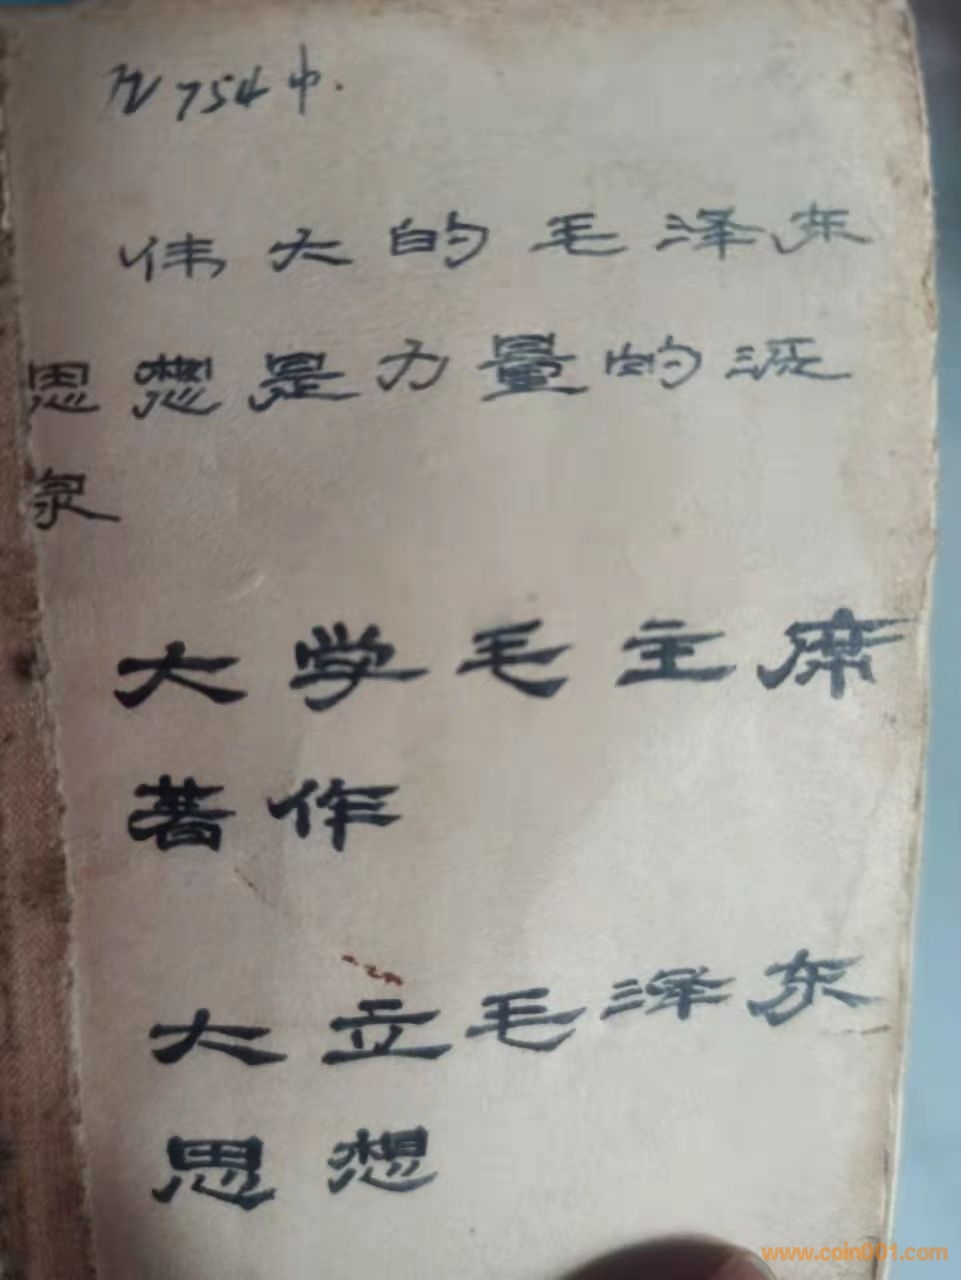 754中.
伟大的毛泽东
思想是力量的源
泉
大学毛主席
著作
大立毛泽东
思想
www.coin001.com